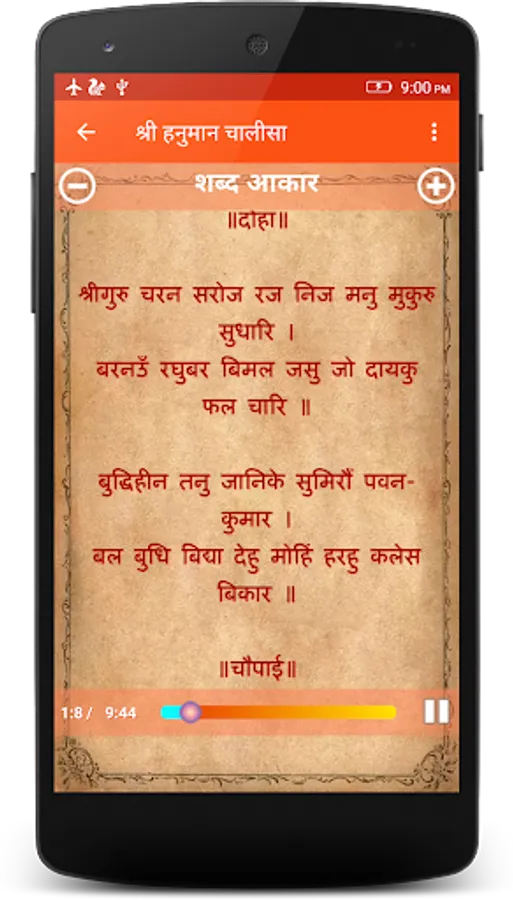 9:00 PM
श्री हनुमान चालीसा
शब्द आकार
॥दोहा॥
श्रीगुरु चरन सरोज रज निज मनु मुकुरु
सुधारि ।
बरनउँ रघुबर बिमल जसु जो दायकु
फल चारि ॥
बुद्धिहीन तनु जानिके सुमिरौं पवन-
कुमार ।
बल बुधि बिद्या देहु मोहिं हरहु कलेस
बिकार ॥
॥चौपाई॥
1:8 / 9:44